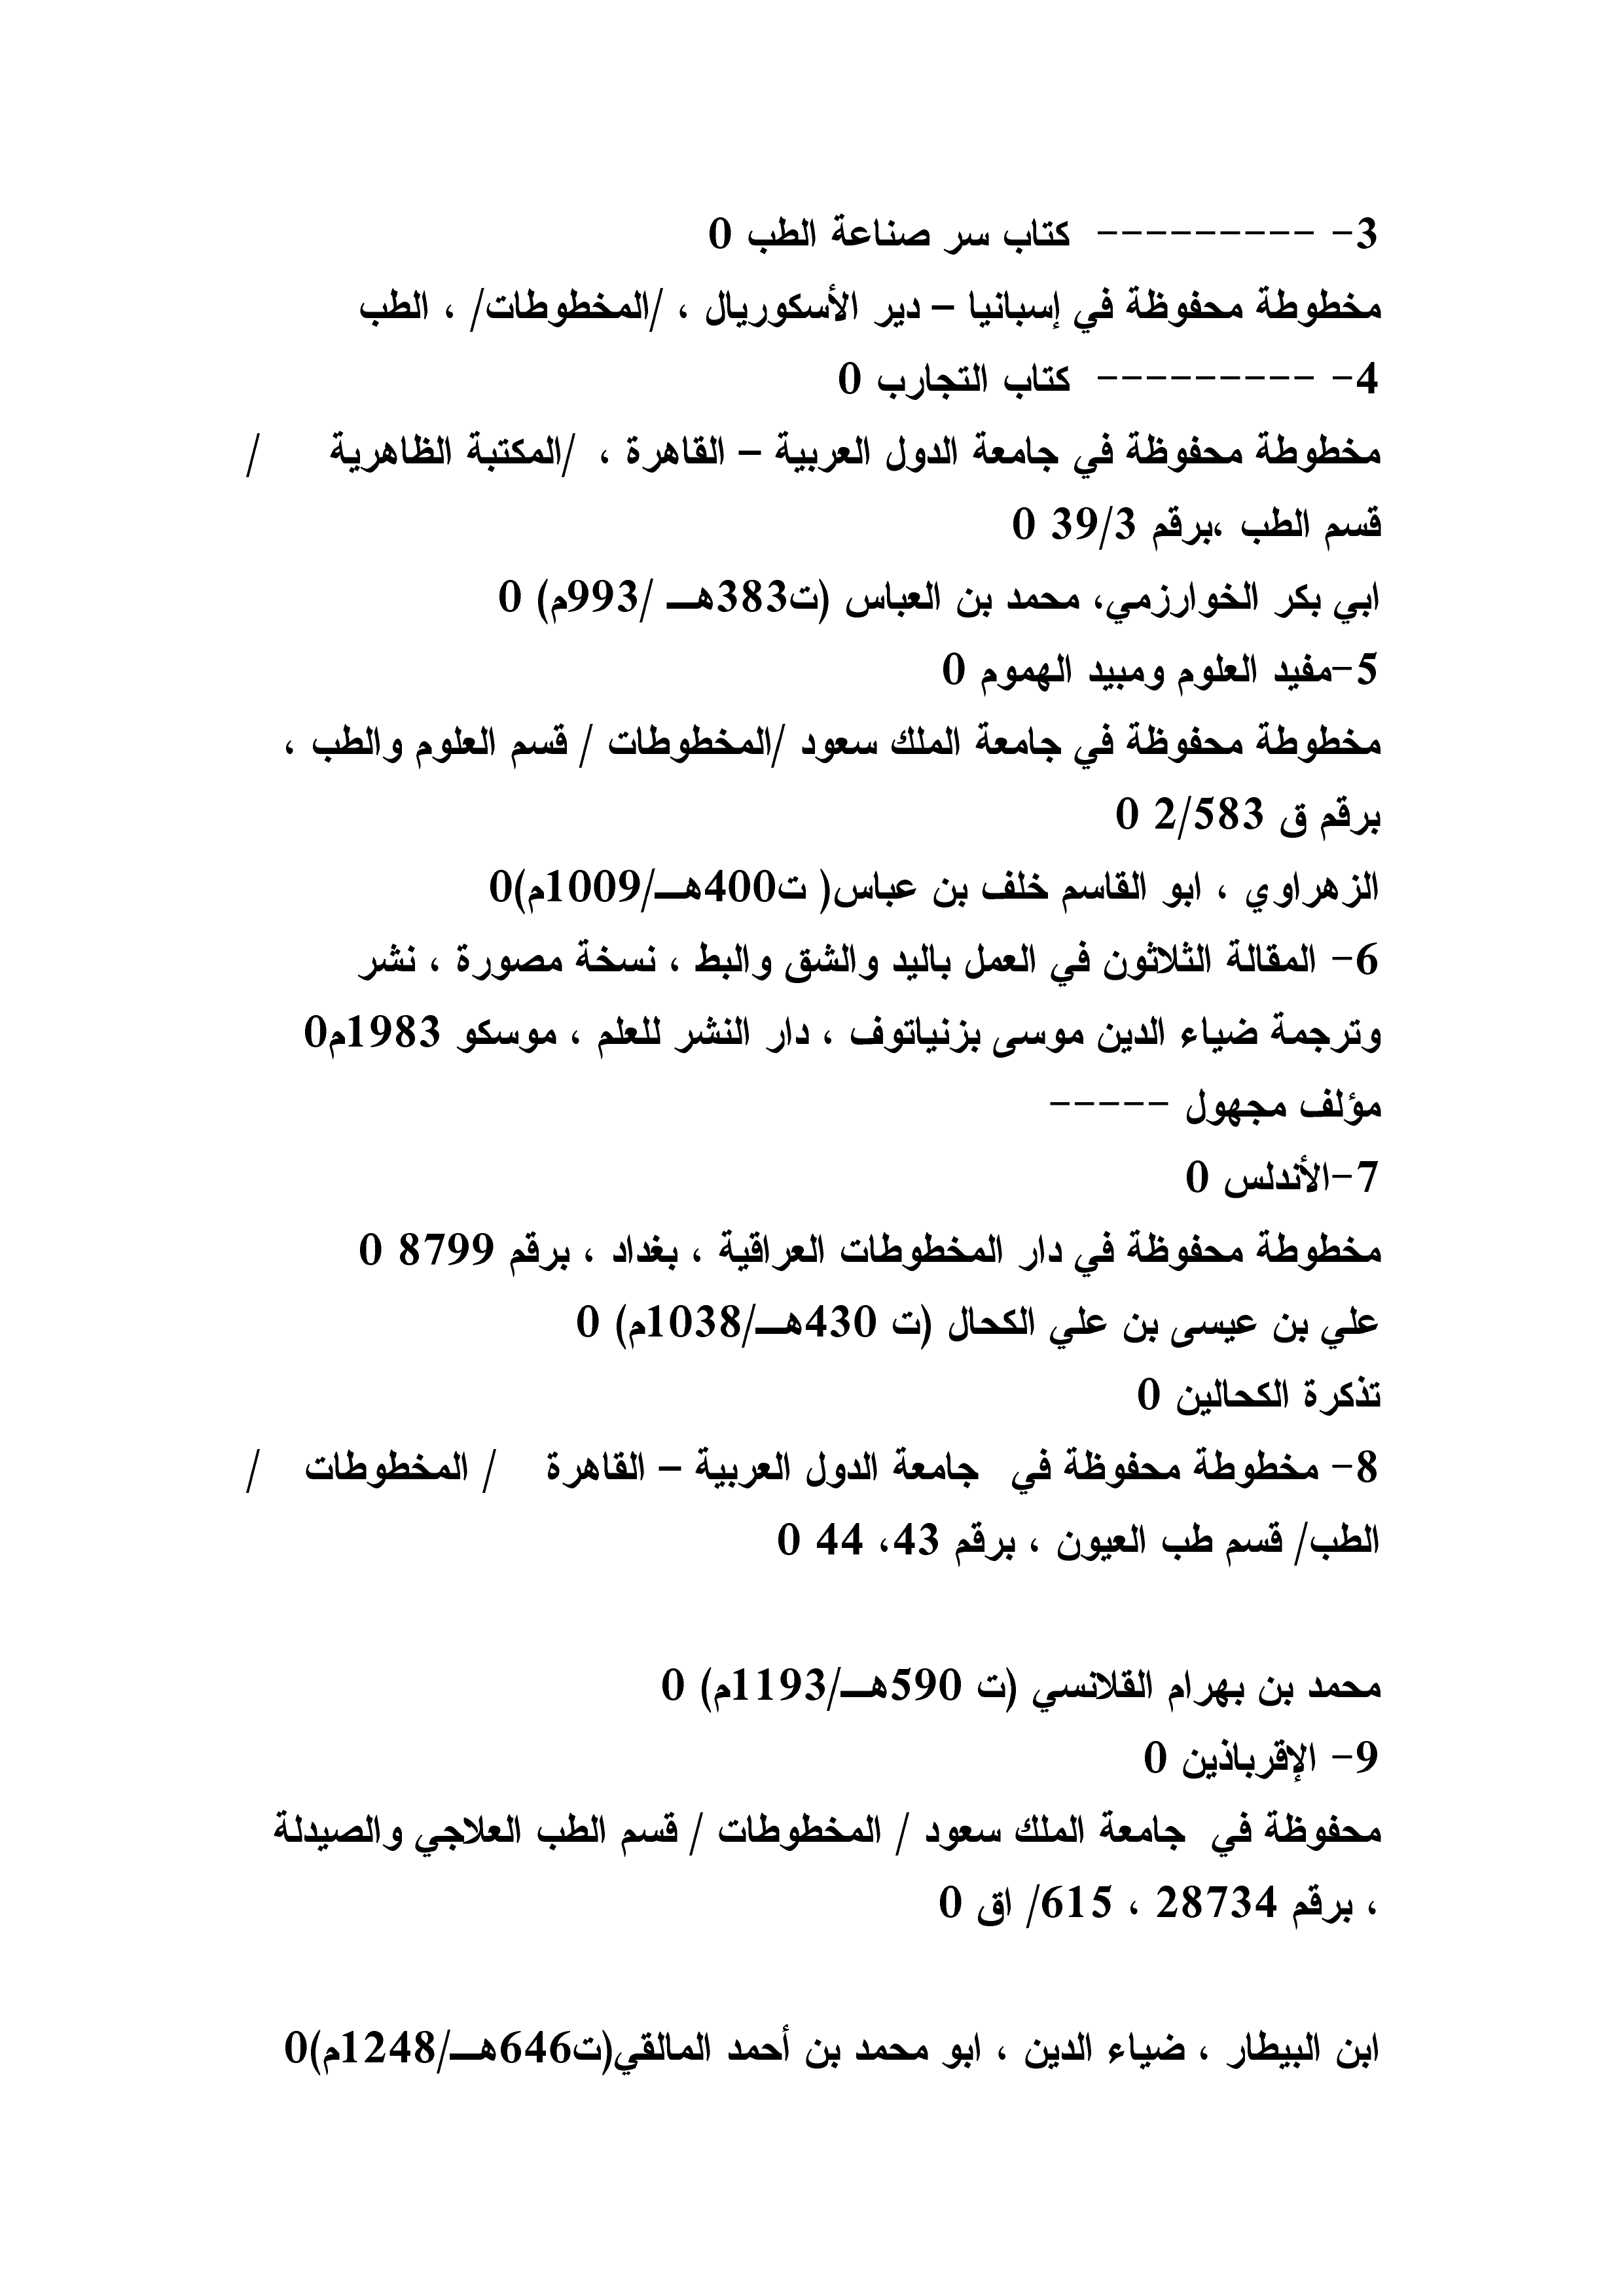 3- --------- كتاب سر صناعة الطب 0
مخطوطة محفوظة في إسبانيا – دير الأسكوريال ، /المخطوطات/ ، الطب
4- --------- كتاب التجارب 0
مخطوطة محفوظة في جامعة الدول العربية – القاهرة ، /المكتبة الظاهرية /
قسم الطب ،برقم 39/3 0
ابي بكر الخوارزمي، محمد بن العباس (ت383هـــ /993م) 0
5-مفيد العلوم ومبيد الهموم 0
مخطوطة محفوظة في جامعة الملك سعود /المخطوطات / قسم العلوم والطب ،
برقم ق 2/583 0
الزهراوي ، ابو القاسم خلف بن عباس( ت400هـــ/1009م)0
6- المقالة الثلاثون في العمل باليد والشق والبط ، نسخة مصورة ، نشر
وترجمة ضياء الدين موسى بزنياتوف ، دار النشر للعلم ، موسكو 1983م0
مؤلف مجهول -----
7-الأندلس 0
مخطوطة محفوظة في دار المخطوطات العراقية ، بغداد ، برقم 8799 0
علي بن عيسى بن علي الكحال (ت 430هـــ/1038م) 0
تذكرة الكحالين 0
8- مخطوطة محفوظة في جامعة الدول العربية – القاهرة / المخطوطات /
الطب/ قسم طب العيون ، برقم 43، 44 0
محمد بن بهرام القلانسي (ت 590هـــ/1193م) 0
9- الإقرباذين 0
محفوظة في جامعة الملك سعود / المخطوطات / قسم الطب العلاجي والصيدلة
، برقم 28734 ، 615/ اق 0
ابن البيطار ، ضياء الدين ، ابو محمد بن أحمد المالقي(ت646هـــ/1248م)0